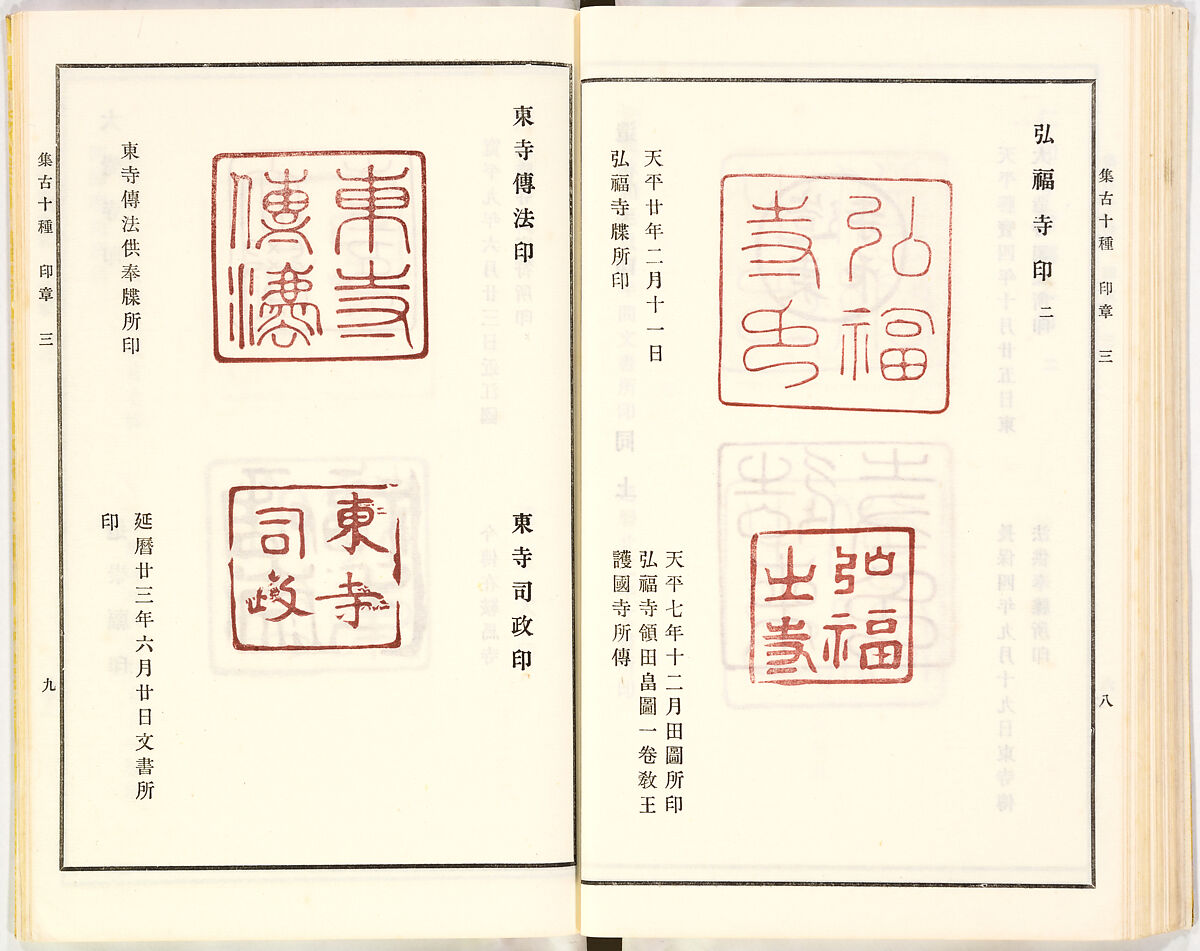 集古十種 印章 三
八
弘福寺印 二
弘福
寺印
天平廿年二月十一日
弘福寺牒所印
弘福
之寺
天平七年十二月田圖所印
弘福寺領田畠圖一卷敎王
護國寺所傳
東寺傳法印
東寺
傳法
東寺傳法供奉牒所印
東寺司政印
東寺
司政
延曆廿三年六月廿日文書所
印
集古十種 印章 三
九